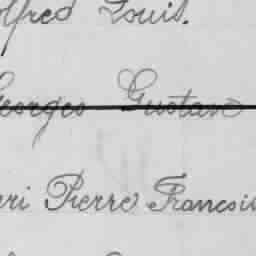 olfred Louis.
Georges Gustave
nri Pierre Francois